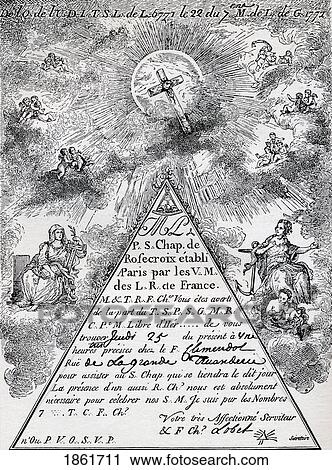 De l'O. de l'U. D. L. T. S. L. de L. 6771 le 22 du 7 M. de L. de G. 1772
A L
P. S. Chap. de
Rosecroix etabli
Paris par les V. M.
des L. R. de France.
M & T. R. F. Chr Vous êtes averti
de la part du T. S. P. S. G. M. R.
C. P. M. Libre d'Her..... de vous
trouver Jeudi 25 du present à
heures precises chez le F.
Ruë de La grande
pour assister au S. Chap qui se tiendra le dit jour
La présence d'un aussi R. Chr nous est absolument
necessaire pour celebrer nos S. M. Je suis par les Nombres
7 T. C. F. Chr
Votre très Affectionné Serviteur
& F. Chr Lobet
n'Ou P. V. O. S. V. P.
1861711 www.fotosearch.com